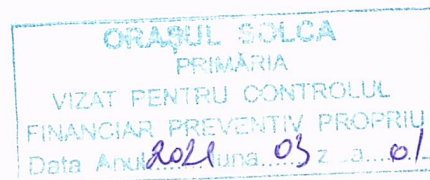 ORAȘUL SOLCA
PRIMĂRIA
VIZAT PENTRU CONTROLUL
FINANCIAR PREVENTIV PROPRIU
Data Anul 2021 luna 03 ziua 01